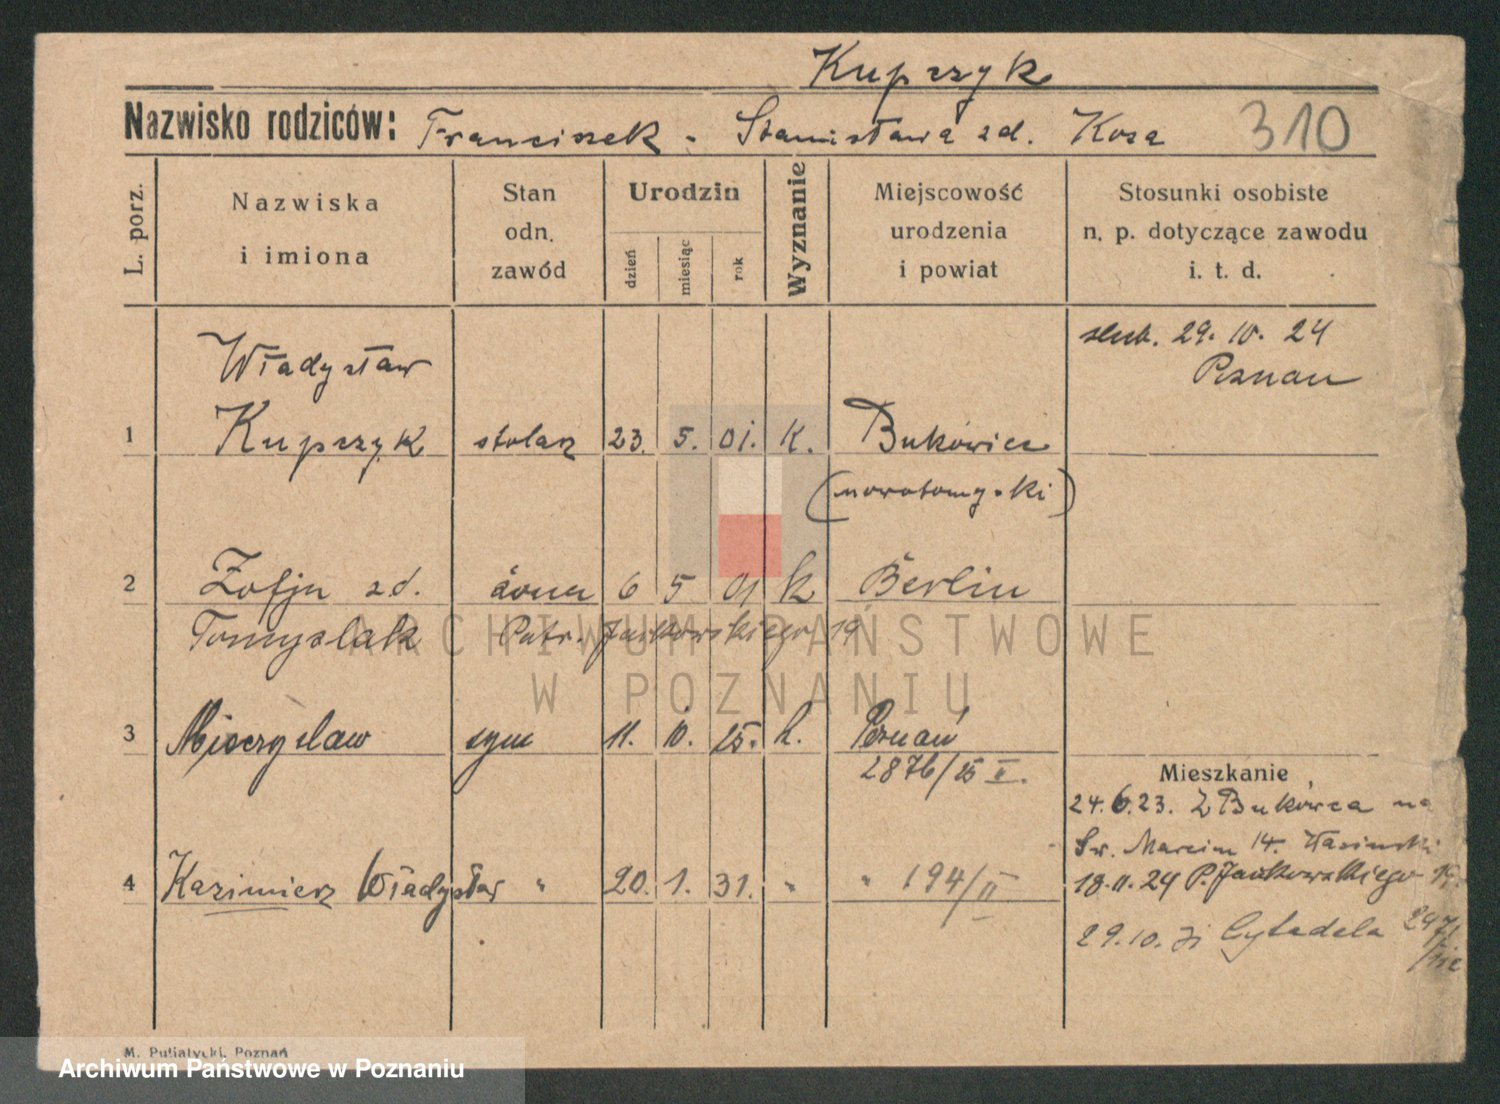 Kupczyk
Nazwisko rodziców: Franciszek - Stanisława zd. Koza 310
L. porz.
Nazwiska
i imiona
Stan
odn.
zawód
Urodzin
dzień
miesiąc
rok
Wyznanie
Miejscowość
urodzenia
i powiat
Stosunki osobiste
n. p. dotyczące zawodu
i. t. d.
ślub. 29. 10. 24
Poznań
Władysław
1 Kupczyk stolarz 23. 5. 01. K. Bukowiec
(nowotomyski)
2 Zofja zd. żona 6 5 01 k Berlin
Tomyslak Patr. Jackowskiego 19
3 Mieczysław syn 11. 10. 25. k. Poznań
2876/25 II.
4 Kazimierz Władysław " 20. 1. 31. " " 194/II
Mieszkanie
24.6.23. Z Bukówca na
Św. Marcin 14.
18.11.24 P. Jackowskiego 19.
29.10. 31 Cytadela
M. Putiatycki, Poznań
ARCHIWUM PAŃSTWOWE
W POZNANIU
Archiwum Państwowe w Poznaniu